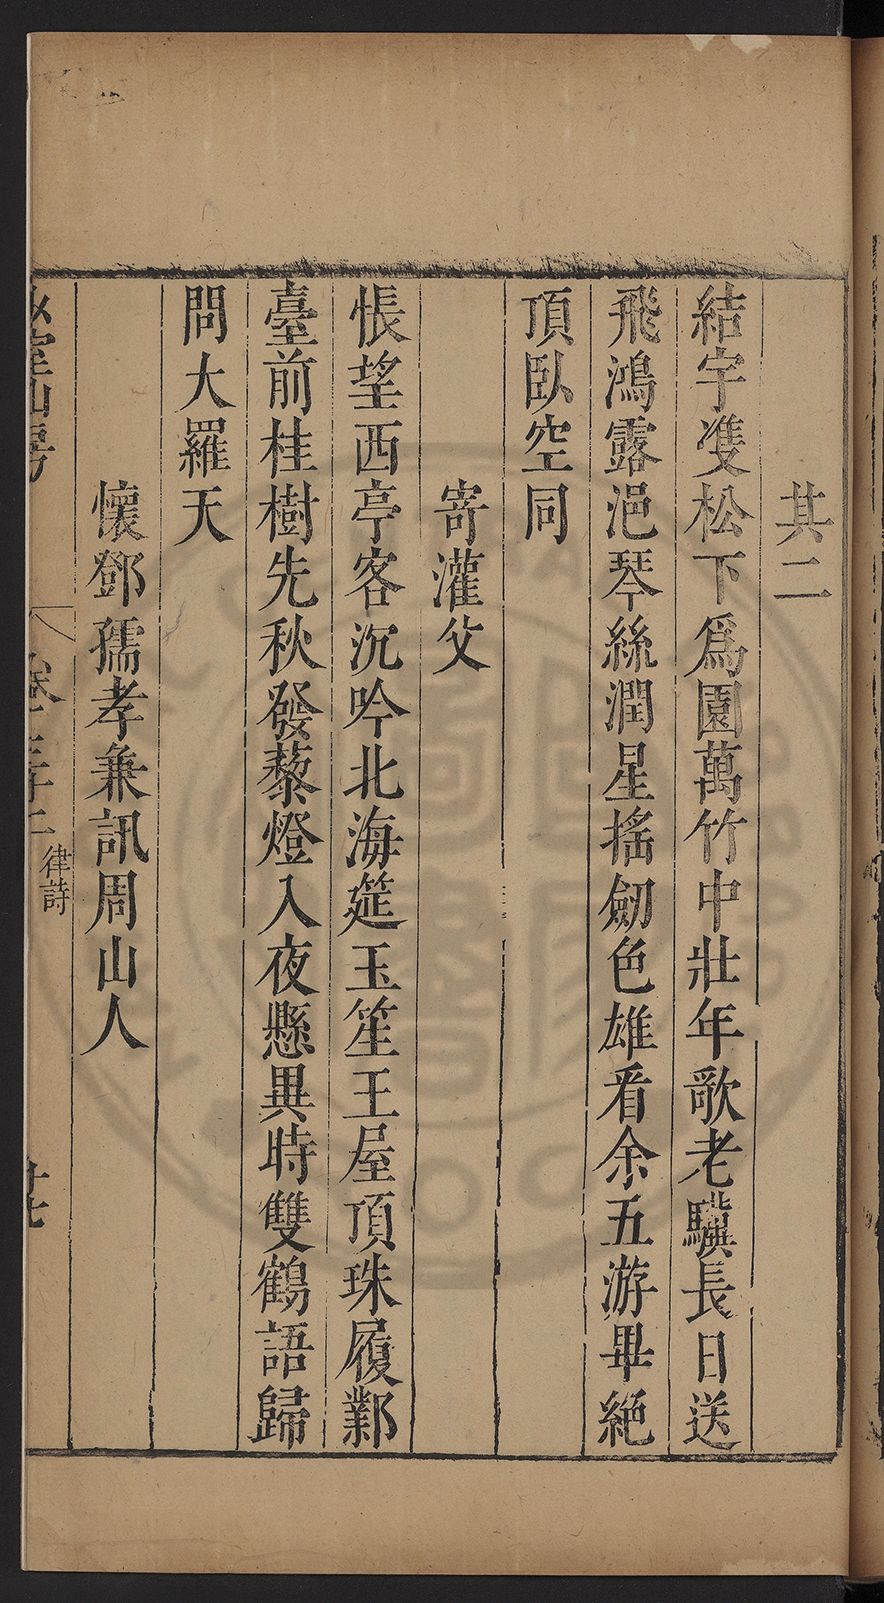 其二
結宇䨇松下爲園萬竹中壯年歌老驥長日送
飛鴻露浥琴絲潤星搖劒色雄看余五游畢絶
頂臥空同
寄灌父
悵望西亭客沉吟北海筵玉笙王屋頂珠履鄴
臺前桂樹先秋發藜燈入夜懸異時雙鶴語歸
問大羅天
懷鄧孺孝兼訊周山人
室山房
卷三十二
律詩
十七